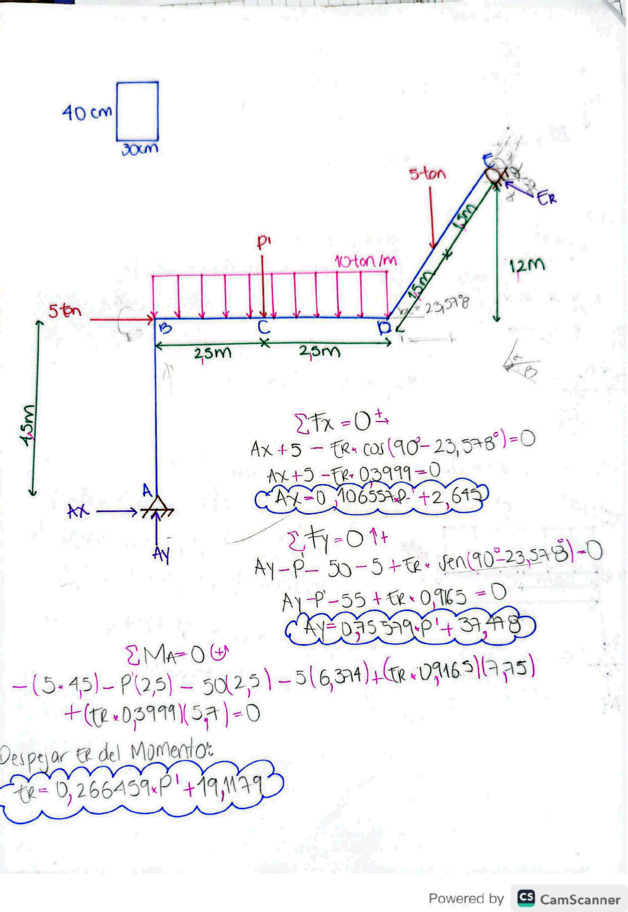 40 cm
30cm
E
5 ton
ER
P'
1,5m
10 ton/m
1,5m
12m
23,578
5 ton
B
C
D
2,5m
2,5m
4,5m
ΣFx = 0 +→
Ax + 5 - ER * cos(90° - 23,578°) = 0
Ax + 5 - ER * 0,3999 = 0
Ax = 0,106557P' + 2,645
A
Ax
Ay
ΣFy = 0 ↑+
Ay - P' - 50 - 5 + ER * sen(90° - 23,578°) = 0
Ay - P' - 55 + ER * 0,9165 = 0
Ay = 0,75579 * P' + 37,478
ΣMA = 0
-(5 * 4,5) - P'(2,5) - 50(2,5) - 5(6,374) + (ER * 0,9165)(7,75)
+ (ER * 0,3999)(5,7) = 0
Despejar ER del Momento:
ER = 0,266459 * P' + 19,1179
Powered by CS CamScanner